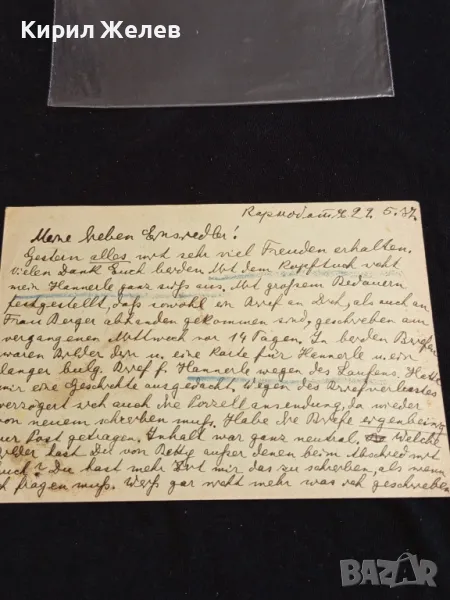 Кирил Желев
29. 5. 37.
Meine lieben Einsiedler!
Gestern alles mit sehr viel Freuden erhalten.
Vielen Dank Euch beiden. Mit dem Kopftuch sieht
mein Hannerle ganz süß aus. Mit großem Bedauern
festgestellt, daß sowohl ein Brief an Dich, als auch an
Frau Berger abhanden gekommen sind, geschrieben am
vergangenen Mittwoch vor 14 Tagen. In beiden Briefen
waren Bilder drin u. eine Karte für Hannerle u. ein
langer bulg. Brief f. Hannerle wegen des Kaufens. Hatte
mir eine Geschichte ausgedacht. Wegen des Briefverlustes
verzögert sich auch die, da wieder
von neuem schreiben muß. Habe die Briefe eigenhändig
zur Post getragen. Inhalt war ganz neutral. Welche
Bilder hast Du von Betty außer denen beim Abschied mit
Euch? Du hast mehr Zeit mir das zu schreiben, als wenn
ich fragen muß. Weiß gar nicht mehr was ich geschrieben
BAZAR